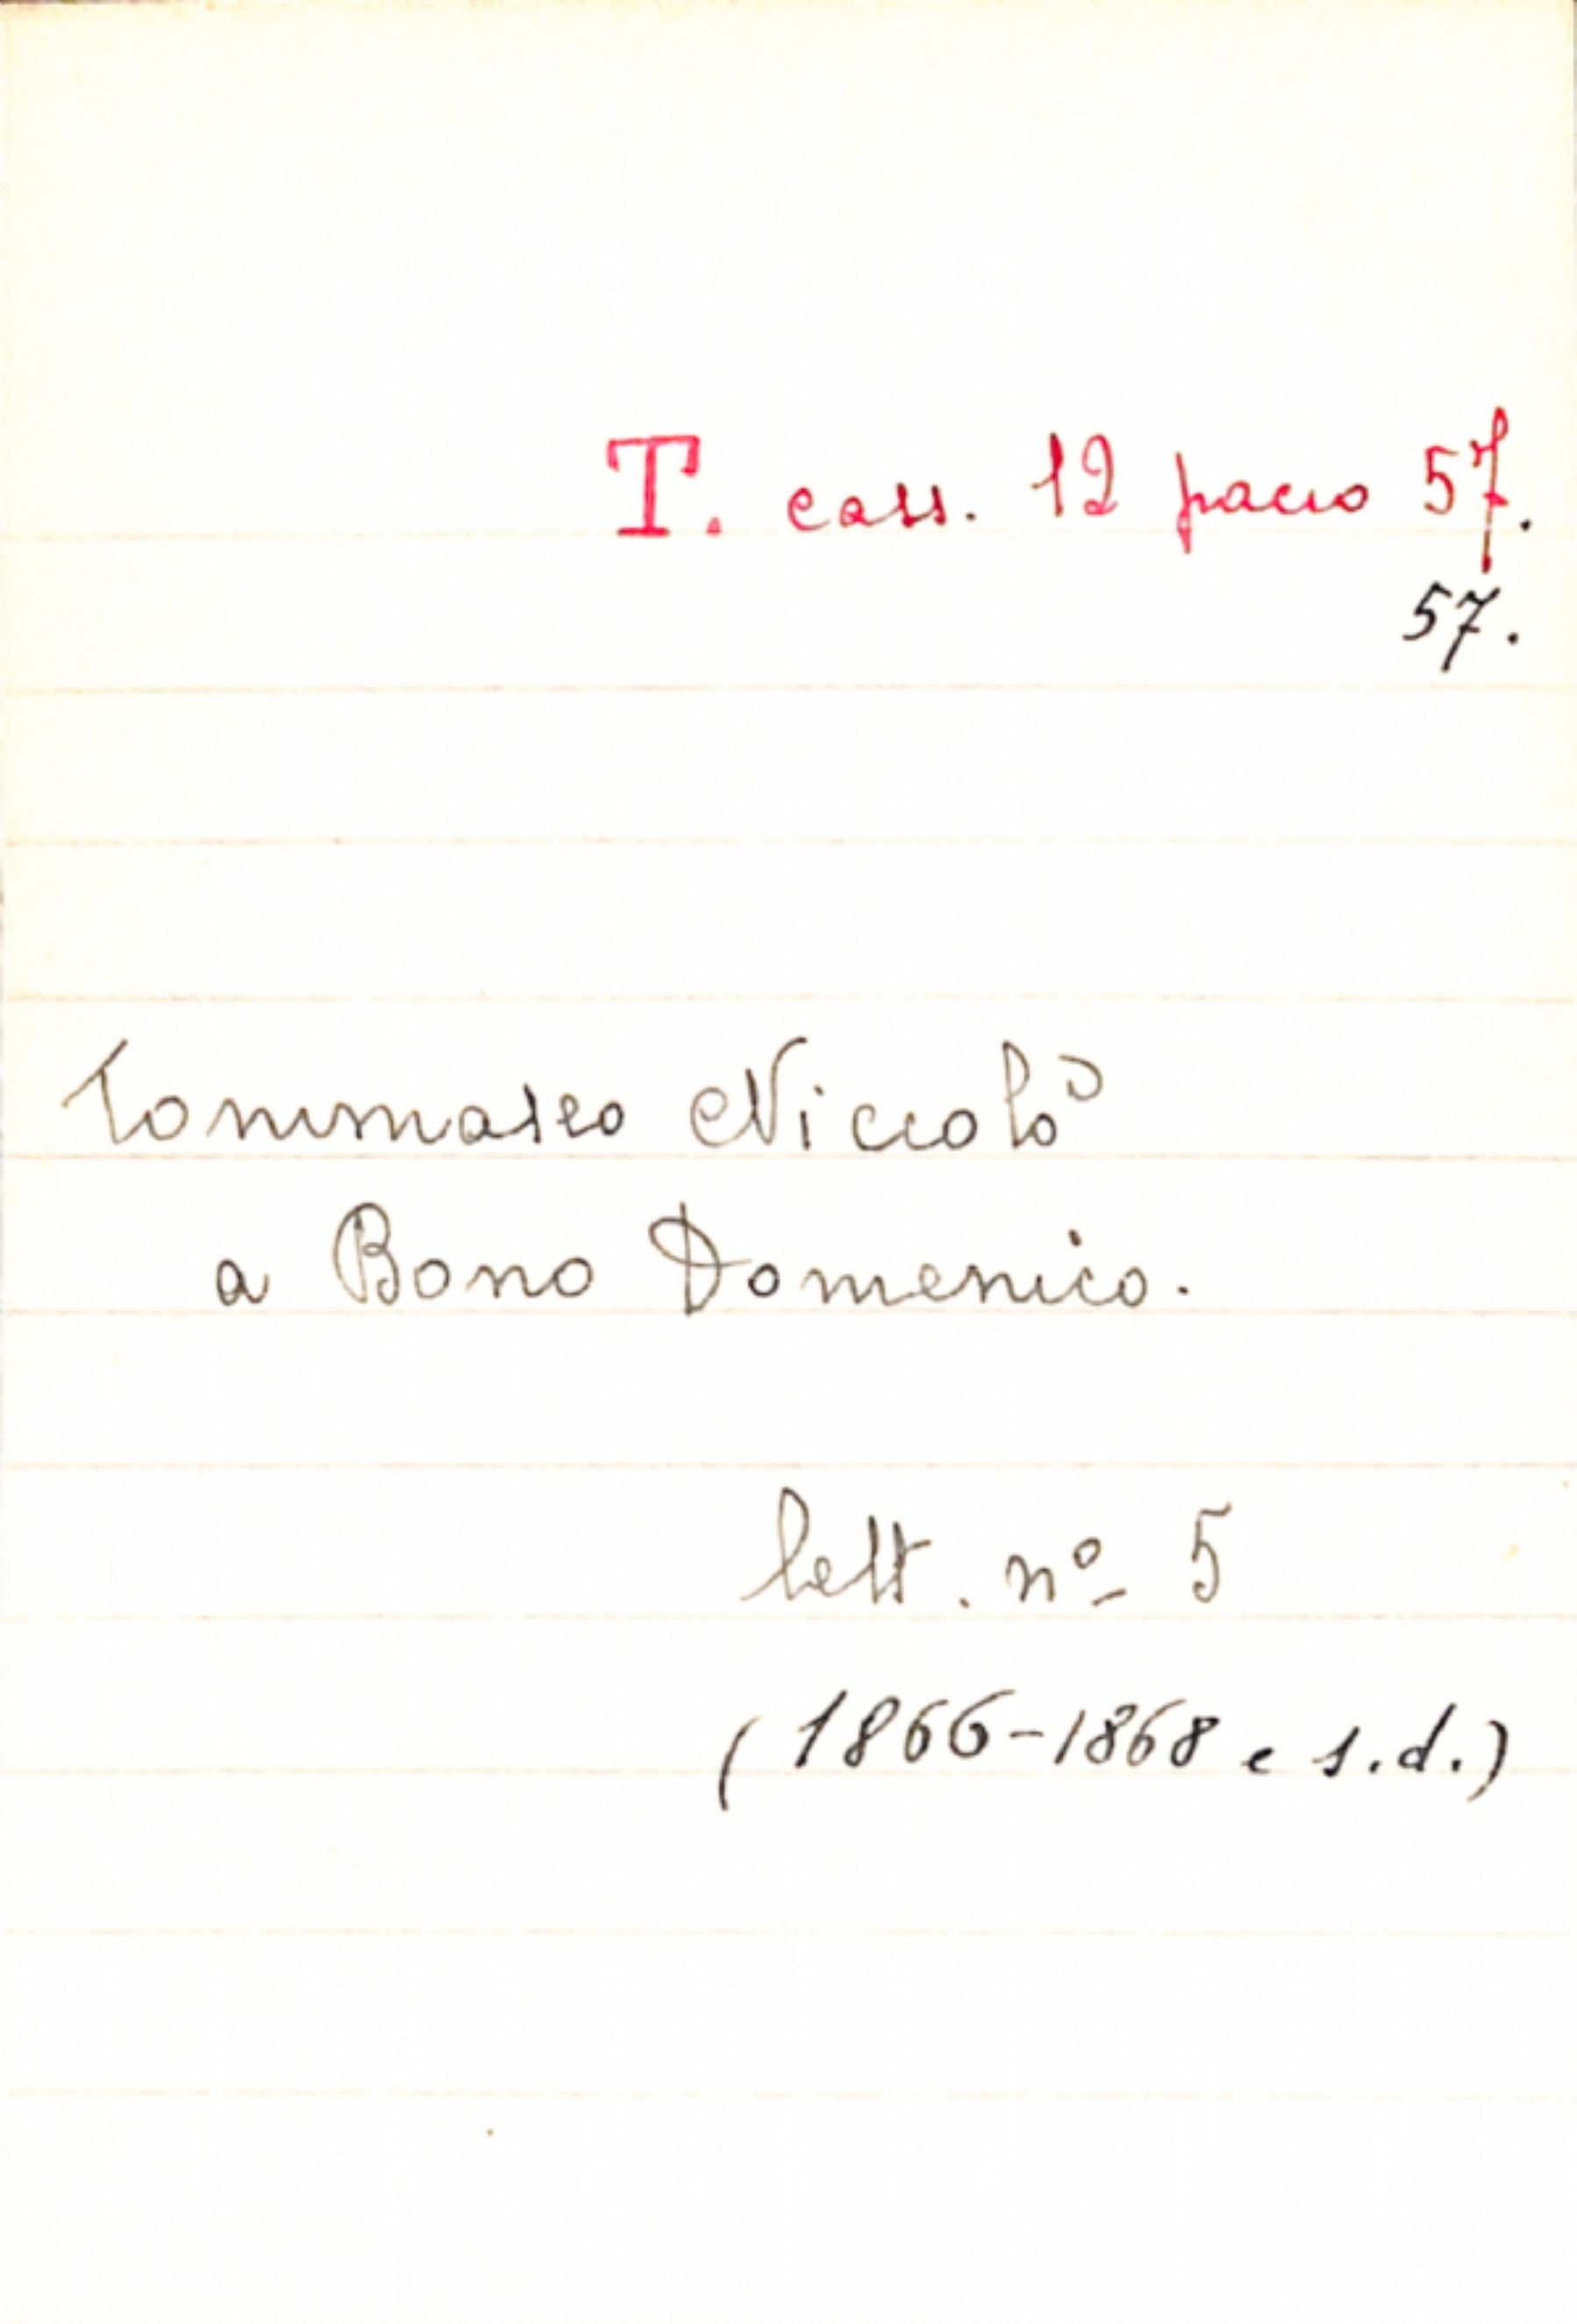 T. cass. 12 pacco 57.
57.
Tommaseo Niccolò
a Bono Domenico.
lett. nº 5
(1866-1868 e s.d.)